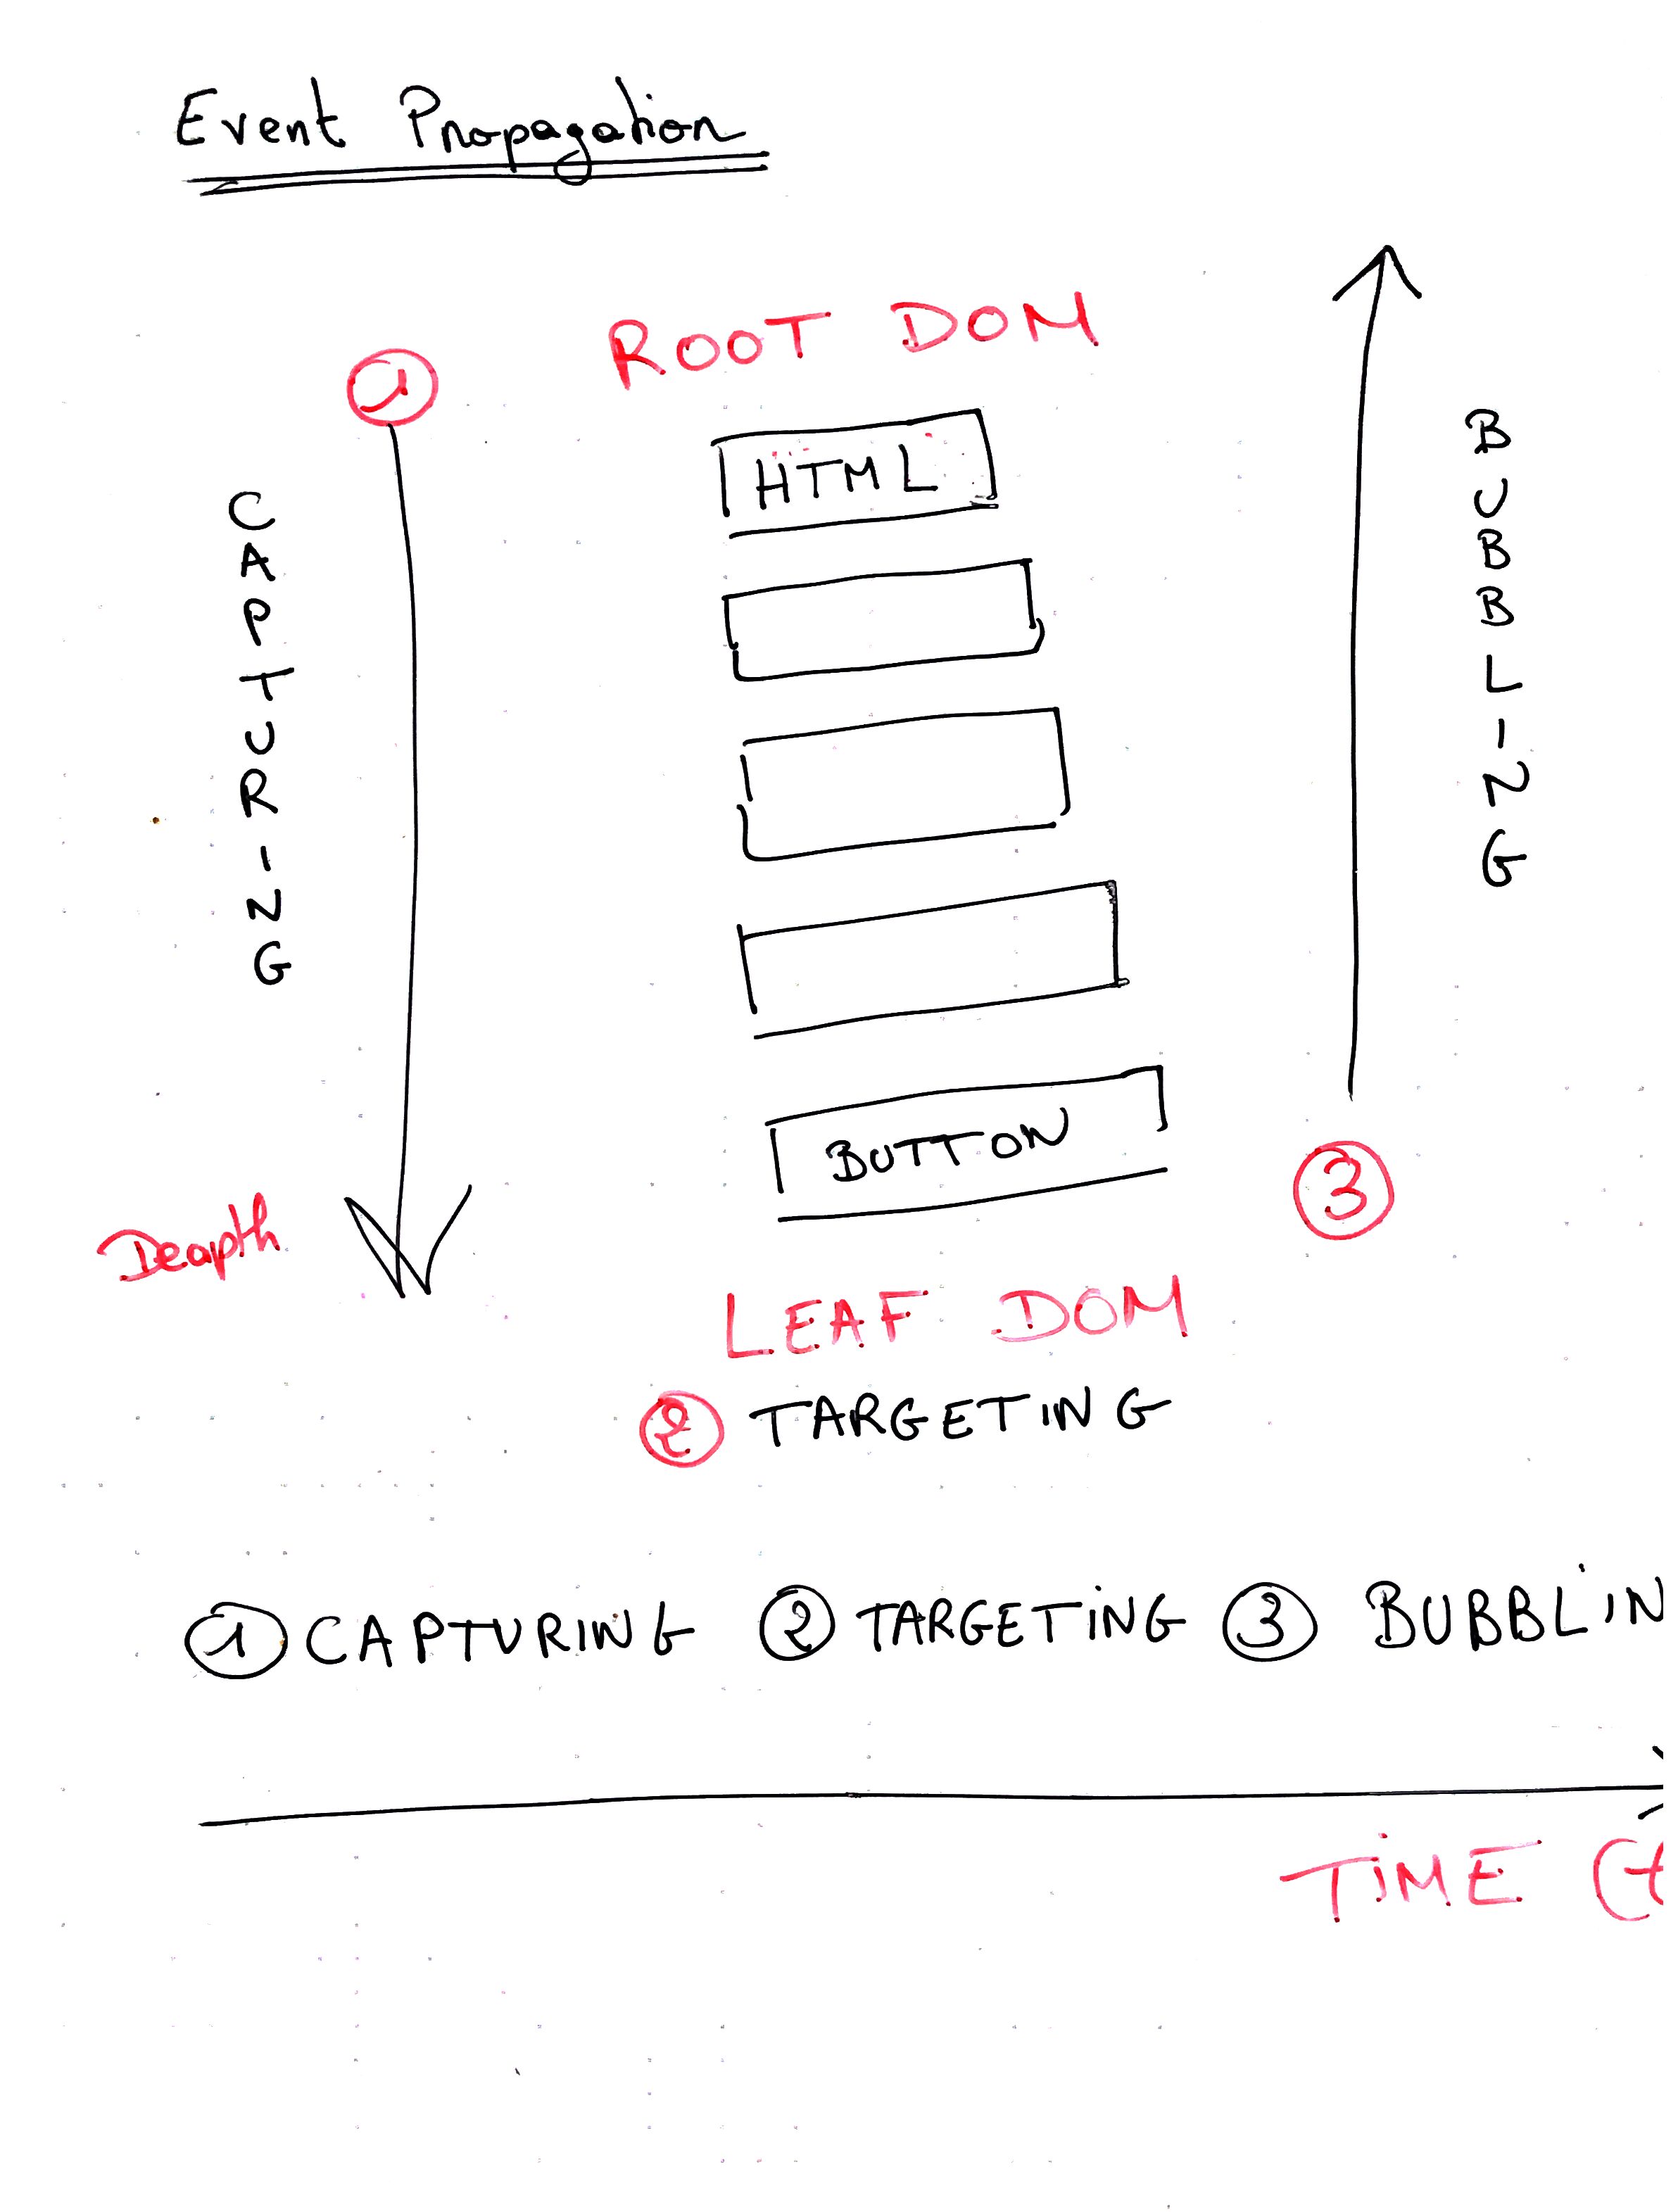 Event Propagation
ROOT DOM
1
CAPTURING
HTML
BUBBLING
BUTTON
3
Deapth
LEAF DOM
2 TARGETING
1 CAPTURING 2 TARGETING 3 BUBBLIN
TiME (t